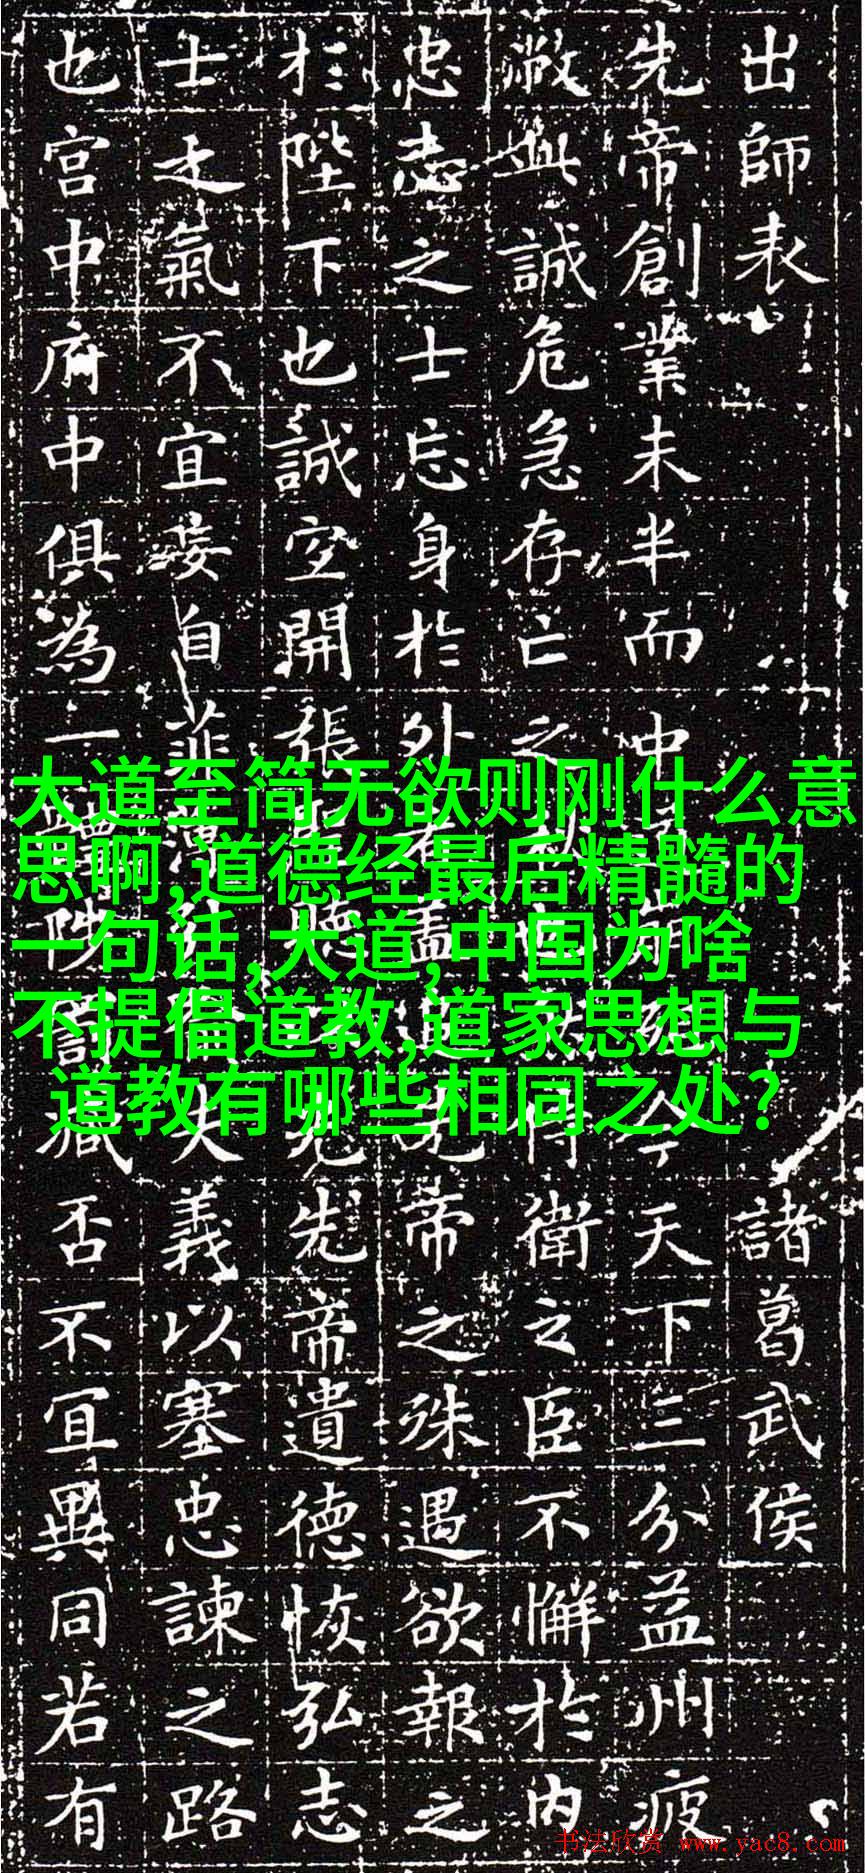 出師表 諸葛武侯
先帝創業未半而中 今天下三分益州疲
敝此誠危急存亡之 侍衛之臣不懈於内
忠志之士忘身於外者蓋追 先帝之殊遇欲報之
於陛下也誠宜開張 聽 先帝遺德恢弘志
士之氣不宜妄自菲薄 失義以塞忠諫之路
也宮中府中俱為一體陟罰臧否不宜異同若有
大道至简无欲则刚什么意
思啊,道德经最后精髓的
一句话,大道,中国为啥
不提倡道教,道家思想与
道教有哪些相同之处?
书法欣赏 www.yac8.com